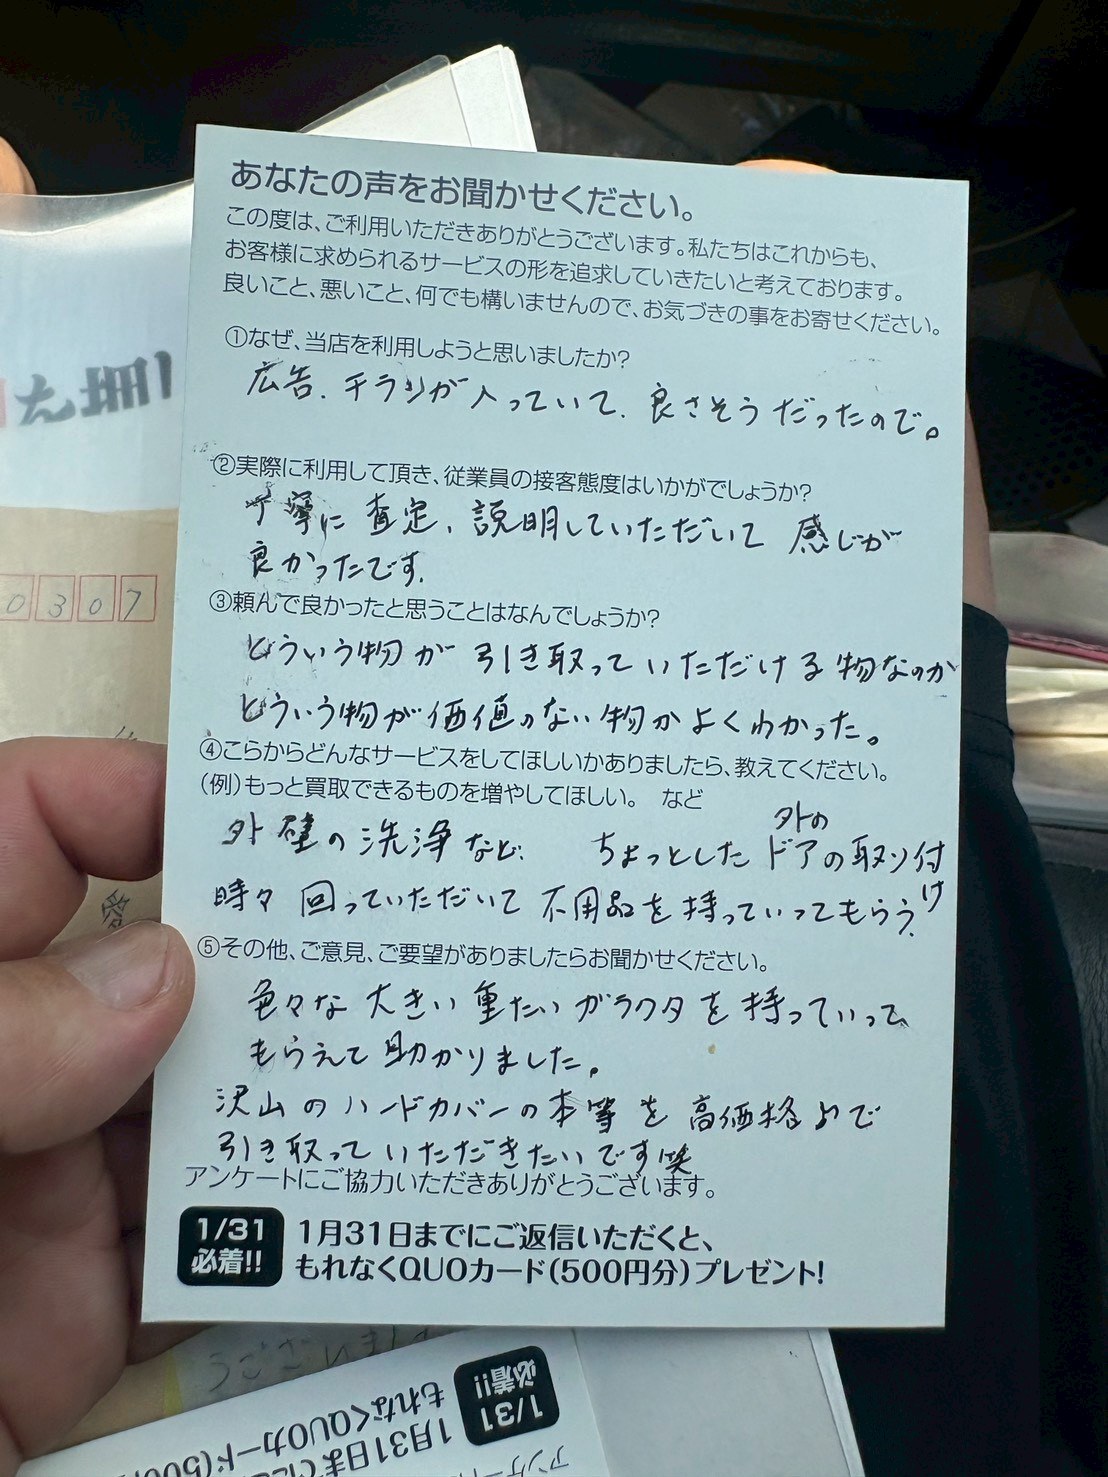 あなたの声をお聞かせください。
この度は、ご利用いただきありがとうございます。私たちはこれからも、
お客様に求められるサービスの形を追求していきたいと考えております。
良いこと、悪いこと、何でも構いませんので、お気づきの事をお寄せください。
①なぜ、当店を利用しようと思いましたか?
広告、チラシが入っていて、良さそうだったので。
②実際に利用して頂き、従業員の接客態度はいかがでしょうか?
丁寧に査定、説明していただいて 感じが
良かったです。
③頼んで良かったと思うことはなんでしょうか?
どういう物が 引き取っていただける物なのか
どういう物が価値のない物かよくわかった。
④こらからどんなサービスをしてほしいかありましたら、教えてください。
(例)もっと買取できるものを増やしてほしい。 など
外壁の洗浄など、 ちょっとした 外の ドアの取り付け
時々 回っていただいて 不用品を持っていってもらう。
⑤その他、ご意見、ご要望がありましたらお聞かせください。
色々な 大きい 重たい ガラクタを持っていって
もらえて助かりました。
沢山のハードカバーの本等を 高価格で
引き取っていただきたいです笑
アンケートにご協力いただきありがとうございます。
1/31
必着!!
1月31日までにご返信いただくと、
もれなくQUOカード(500円分)プレゼント!
0307
うございました
1/31
必着!!
1月31日まで
もれなくQUOカード(500
アンケート